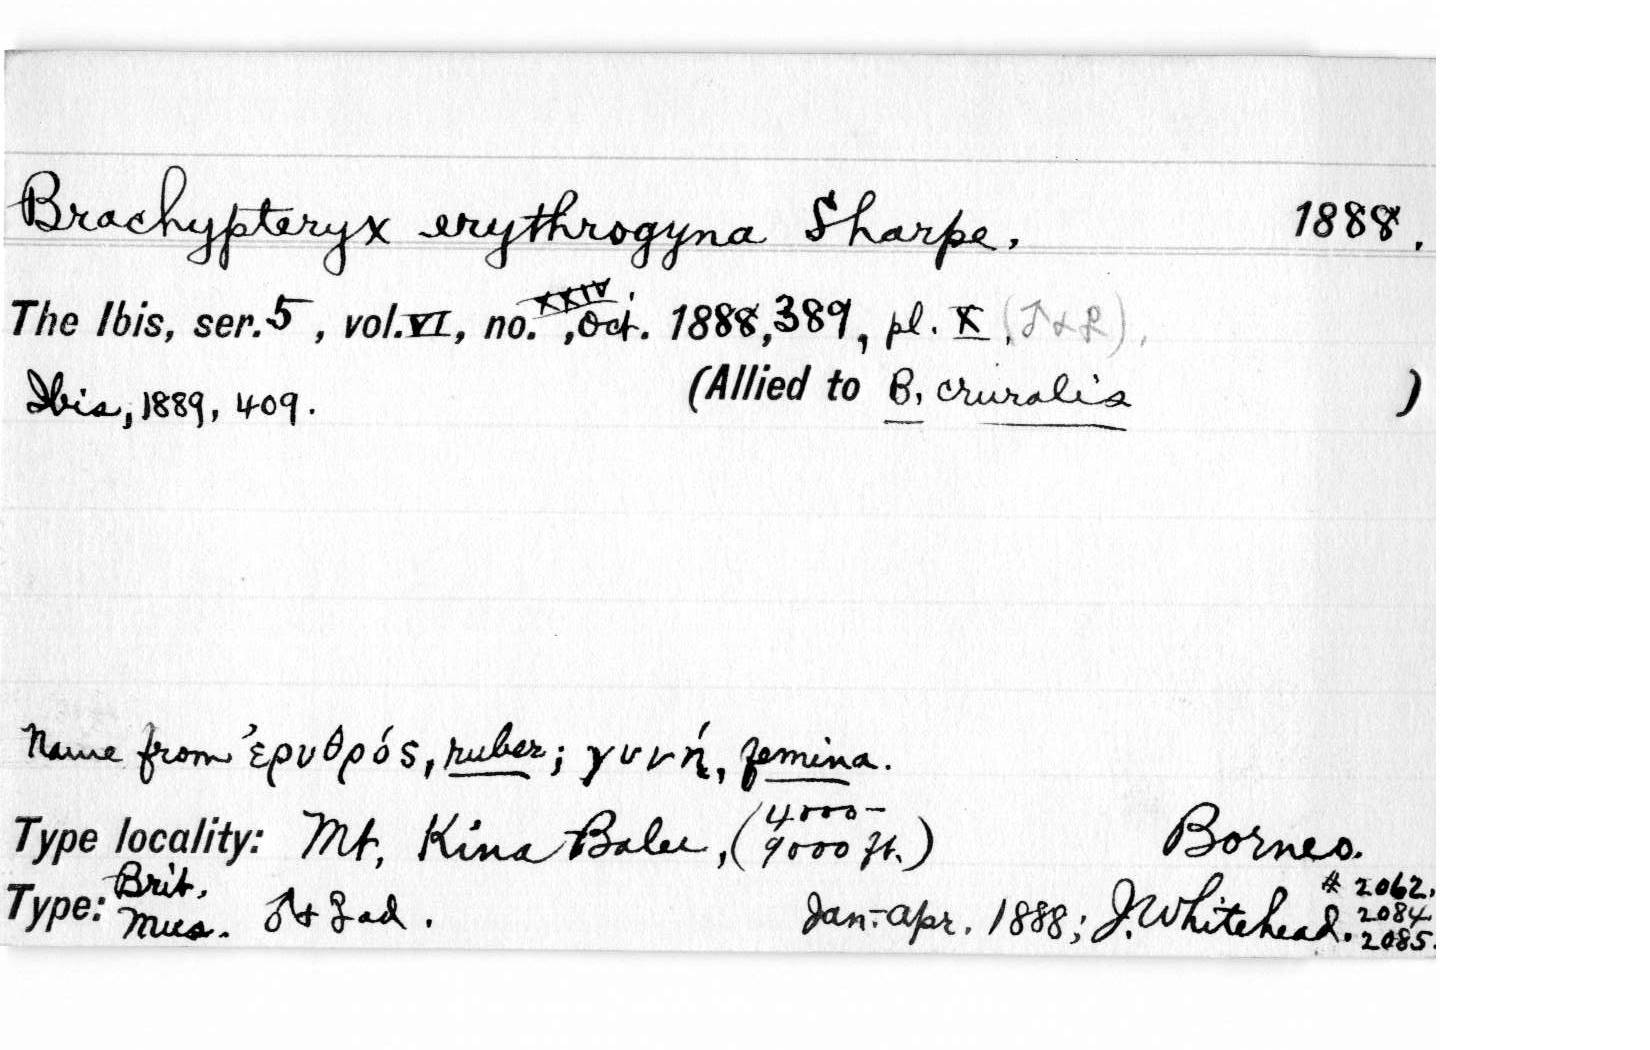 Brachypteryx erythrogyna Sharpe. 1888.
The Ibis, ser. 5, vol. VI, no. XXIV, Oct. 1888, 389, pl. X. (♂ & ♀).
Ibis, 1889, 409. (Allied to B. cruralis )
Name from ἐρυθρός, ruber; γυνή, femina.
Type locality: Mt. Kina Balu, (4000-9000 ft.) Borneo.
Type: Brit. Mus. ♂ & ♀ ad. Jan.-Apr. 1888; J. Whitehead. # 2062, 2084, 2085.